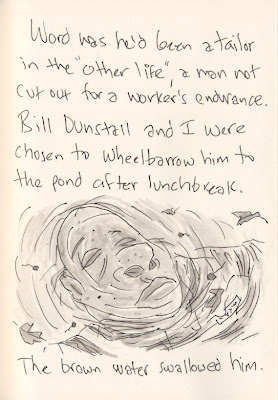 Word was he'd been a tailor
in the "other life", a man not
cut out for a worker's endurance.
Bill Dunstall and I were
chosen to wheelbarrow him to
the pond after lunchbreak.
The brown water swallowed him.